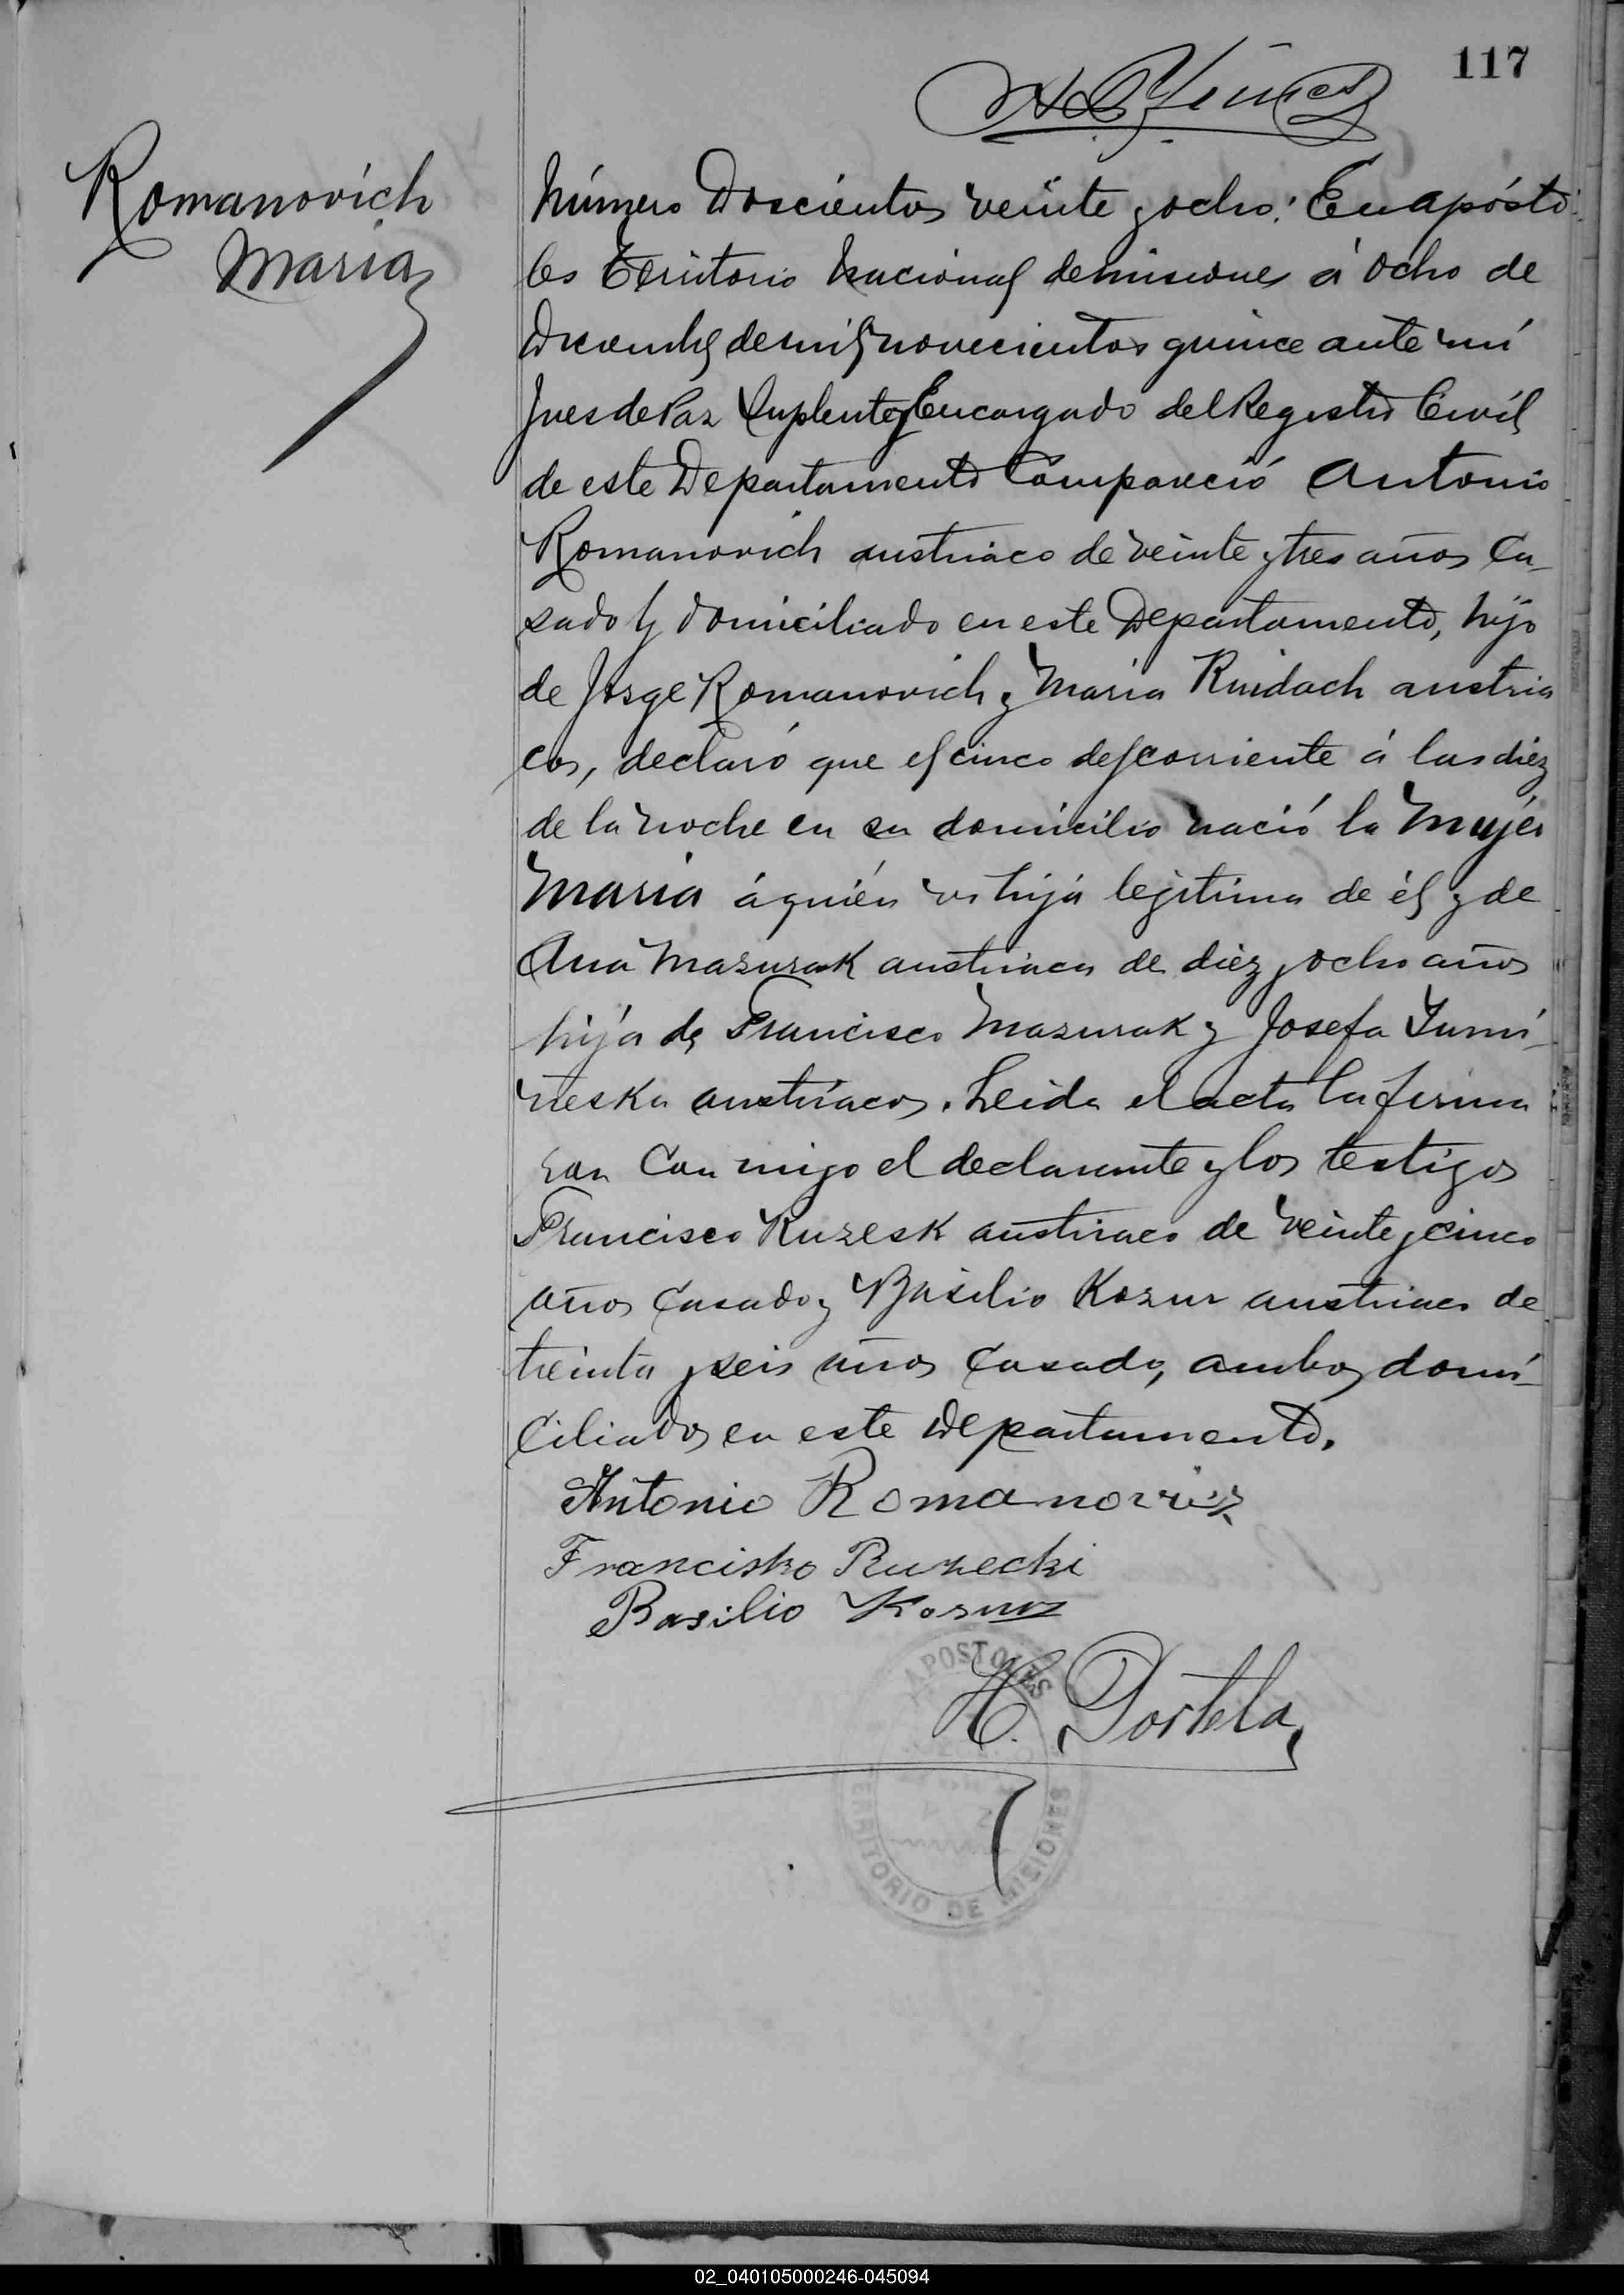 117
Romanovich
Maria
Número Doscientos veinte y ocho: En apósto
les Territorio Nacional de misiones á ocho de
Diciembre de mil novecientos quince ante mí
Jues de Paz Suplente y Encargado del Registro Civil
de este Departamento Compareció Antonio
Romanovich austriaco de veinte y tres años Ca-
sado y domiciliado en este Departamento, hijo
de Jorge Romanovich y Maria Ruidach austria
cos, declaró que el cinco del corriente á las diez
de la noche en su domicilio nació la Mujér
Maria á quién vi hija legitima de él y de
Ana Mazurak austriaca de diez y ocho años
hija de Francisco Mazurak y Josefa Yumi-
neska austríacos. Leida el acta la firma
ron Con migo el declarante y los testigos
Francisco Ruzesk austriaco de veinte y cinco
años Casado y Basilio Kozur austriaco de
treinta y seis años Casado, ambos domi-
Ciliados en este Departamento.
Antonio Romanovicz
Francisko Ruzecki
Basilio Kozur
H. Portela
APOSTOLES
TERRITORIO DE MISIONES
02_040105000246-045094